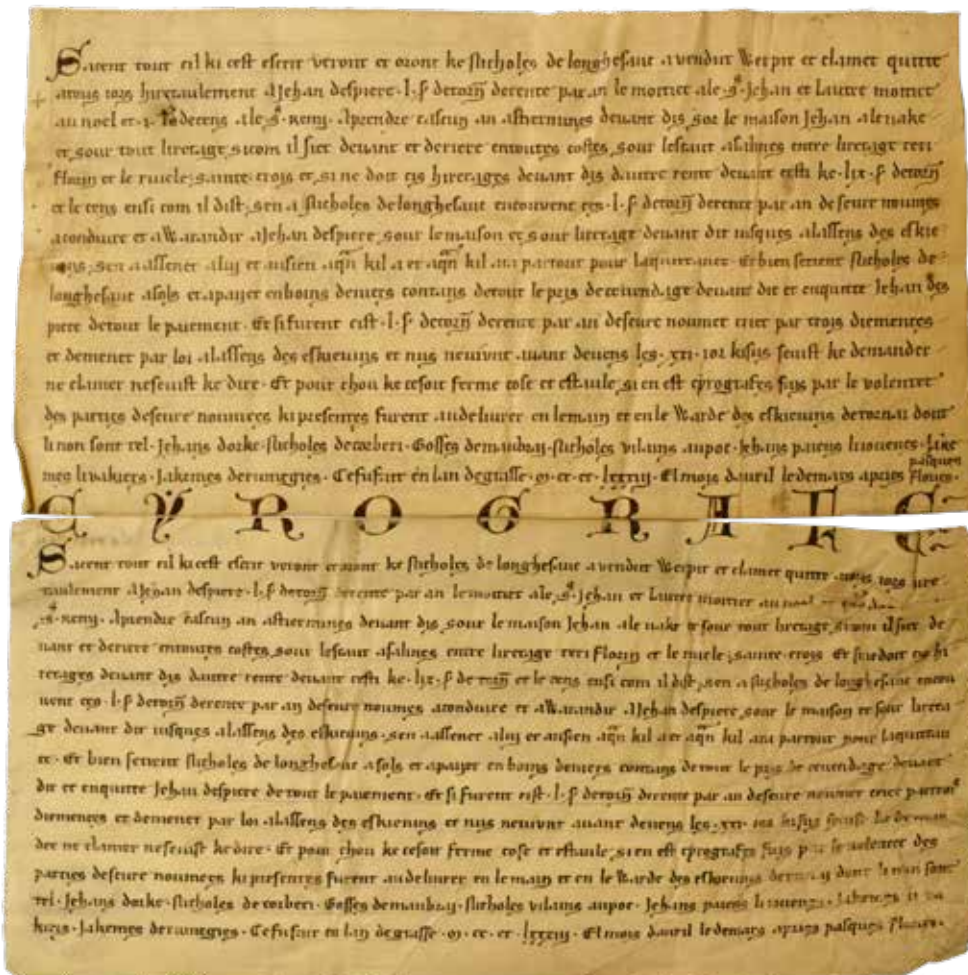 Sacent tout cil ki cest escrit veront et oront ke Nicholes de longhesaut a vendut Werpit et clamet quitte
a tous iors hiretaulement a Jehan despiere · l · s̄ de torñ de rente par an le moitiet a le · s̄ · Jehan et lautre moitiet
au noel et · de cens a le · s̄ · Remi · A prendre cascun an as tiermines deuant dis sor le maison Jehan
et sour tout liretage si com il siet deuant et deriere en toutes costes sour lescaut a salines entre liretage
florin et le ruiele sainte crois et si ne doit cis hiretages deuant dis dautre rente deuant cesti ke · lix · s̄ de torñ
et le cens ensi com il dist sen a Nicholes de longhesaut en couvent ces · l · s̄ de torñ de rente par an deseure noumes
a conduire et a Warandir a Jehan despiere sour le maison et sour liretage deuant dit iusques a lassens des eskie
uins sen a assener a lui et au sien aq̄n kil a et aq̄n kil ara partout pour laquitance · Et bien se tient Nicholes de
longhesaut a sols et a paiiet en boins deniers contans de tout le pris de ce uendage deuant dit et en quitte Jehan des
piere de tout le paiement · Et si furent cist · l · s̄ de torñ de rente par an deseure noumet criet par trois diemences
et demenet par loi a lassens des eskieuins et nus ne uint auant deuens les · xxi · iors ki sus seuist ke demander
ne clamer ne seuist ke dire · Et pour chou ke ce soit ferme cose et estaule si en est cyrografes fais par le volentet
des parties deseure noumees ki presentes furent au deliurer en le main et en le Warde des eskieuins de tornai dont
li non sont tel · Jehans dorke · Nicholes de corberi · Gosses de maubray · Nicholes vilains au pot · Jehans paiens li iouenes · Jake
mes li vakiers · Jakemes de rumegies · Ce fu fait en lan de grasse · m · cc · et · lxxxiij · El mois dauril le demars apries pasques flories ·
C Y R O G R A F E
Sacent tout cil ki cest escrit veront et oront ke Nicholes de longhesaut a vendut Werpit et clamet quitte a tous iors hire
taulement a Jehan despiere · l · s̄ de torñ de rente par an le moitiet a le · s̄ · Jehan et lautre moitiet au noel
s̄ · Remi · A prendre cascun an as tiermines deuant dis sour le maison Jehan et sour tout liretage si com il siet de
uant et deriere en toutes costes sour lescaut a salines entre liretage florin et le ruiele sainte crois Et si ne doit cis hi
retages deuant dis dautre rente deuant cesti ke · lix · s̄ de torñ et le cens ensi com il dist sen a Nicholes de longhesaut en cou
uent ces · l · s̄ de torñ de rente par an deseure noumes a conduire et a Warandir a Jehan despiere sour le maison et sour lireta
ge deuant dit iusques a lassens des eskieuins sen a assener a lui et au sien aq̄n kil a et aq̄n kil ara partout pour laquitan
ce · Et bien se tient Nicholes de longhesaut a sols et a paiiet en boins deniers contans de tout le pris de ce uendage deuant
dit et en quitte Jehan despiere de tout le paiement · Et si furent cist · l · s̄ de torñ de rente par an deseure noumet criet par trois
diemences et demenet par loi a lassens des eskieuins et nus ne uint auant deuens les · xxi · iors ki sus seuist ke deman
der ne clamer ne seuist ke dire · Et pour chou ke ce soit ferme cose et estaule si en est cyrografes fais par le volentet des
parties deseure noumees ki presentes furent au deliurer en le main et en le Warde des eskieuins de tornay dont li non sont
tel · Jehans dorke · Nicholes de corberi · Gosses de maubray · Nicholes vilains au pot · Jehans paiens li iouenes · Jakemes li va
kiers · Jakemes de rumegies · Ce fu fait en lan de grasse · m · cc · et · lxxxiij · El mois dauril le demars apries pasques flories ·